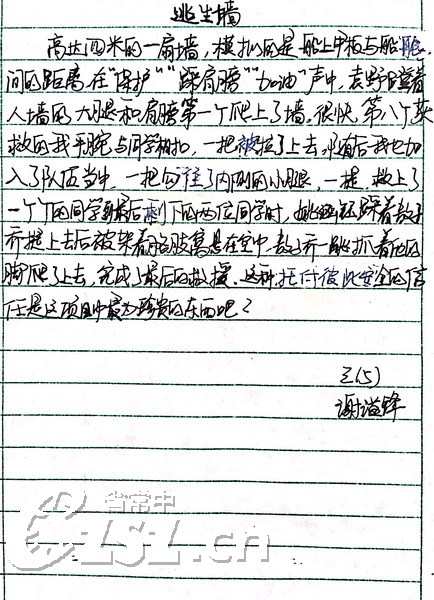 逃生墙
高达四米的一扇墙，模拟的是船上甲板与船舱
间的距离，在"保护""踩肩膀""加油"声中，袁野踏着
人墙的大腿和肩膀第一个爬上了墙，很快，第八个获
救的我手腕与同学相扣，一把被拉了上去，随后我也加
入了队伍当中，一把勾住了内侧的小腿，一提，救上了
一个个的同学到最后剩下的两位同学时，踩着
乔提上去后被架着胳肢窝悬在空中，乔一跳抓着他的
脚爬了上去，完成了最后的救援。这种托付彼此安全的信
任是这项目中最为珍贵的东西吧？
三(5)
谢溢锋
省常中
CZSLSL.cn